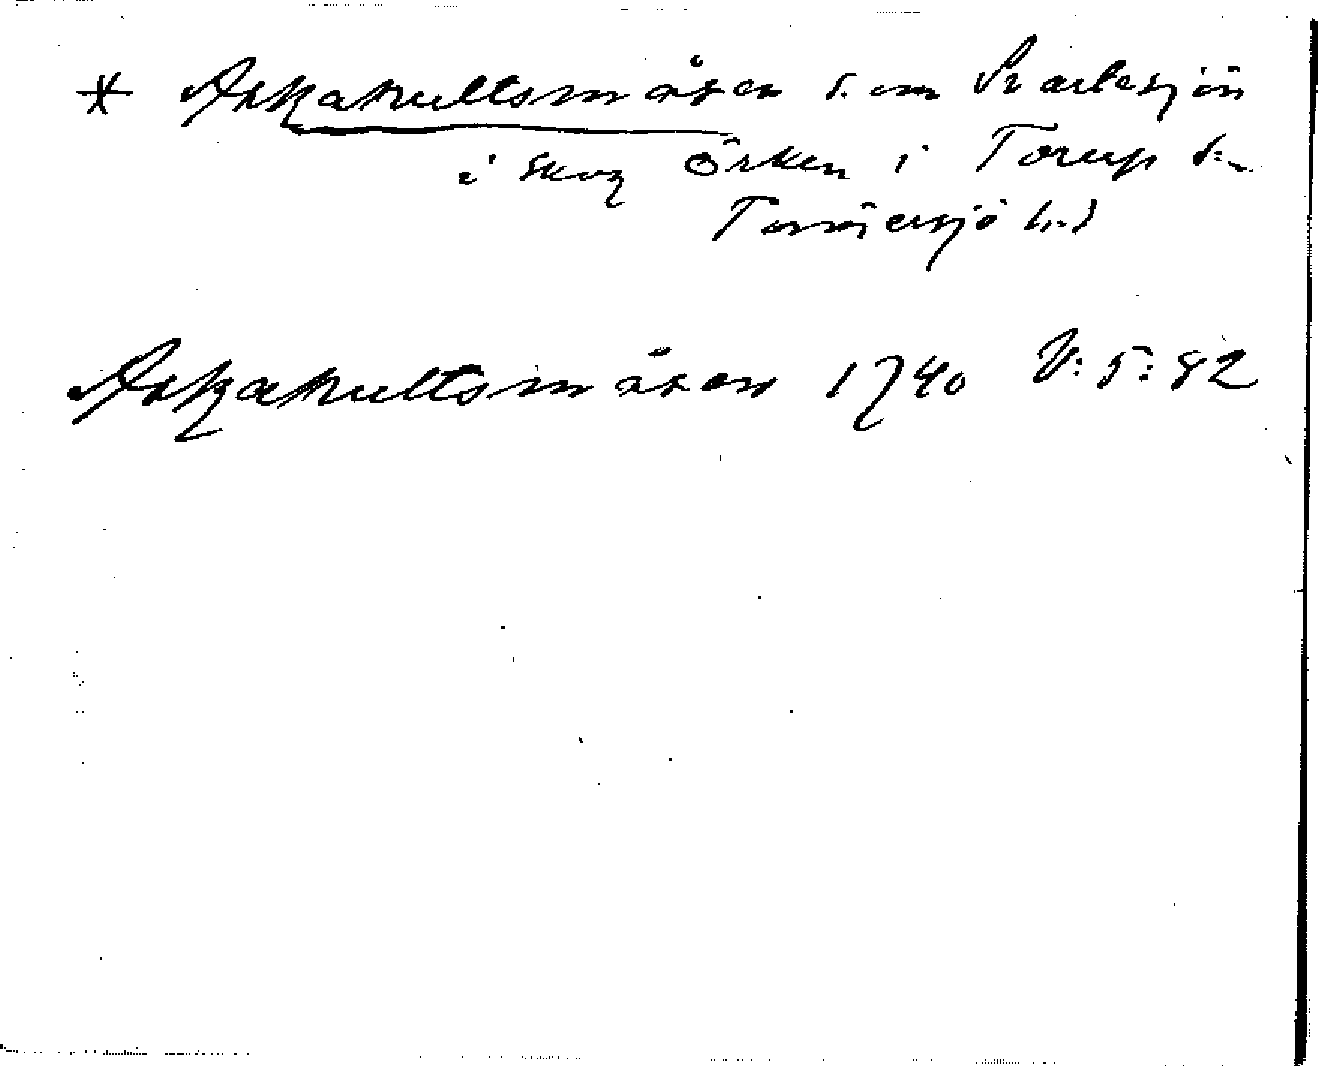 * Askakullsmåsen s. om Svartesjön
i skog Örken i Torup sn
Tönnersjö hd
Askakultsmåsen 1740 V:5:82